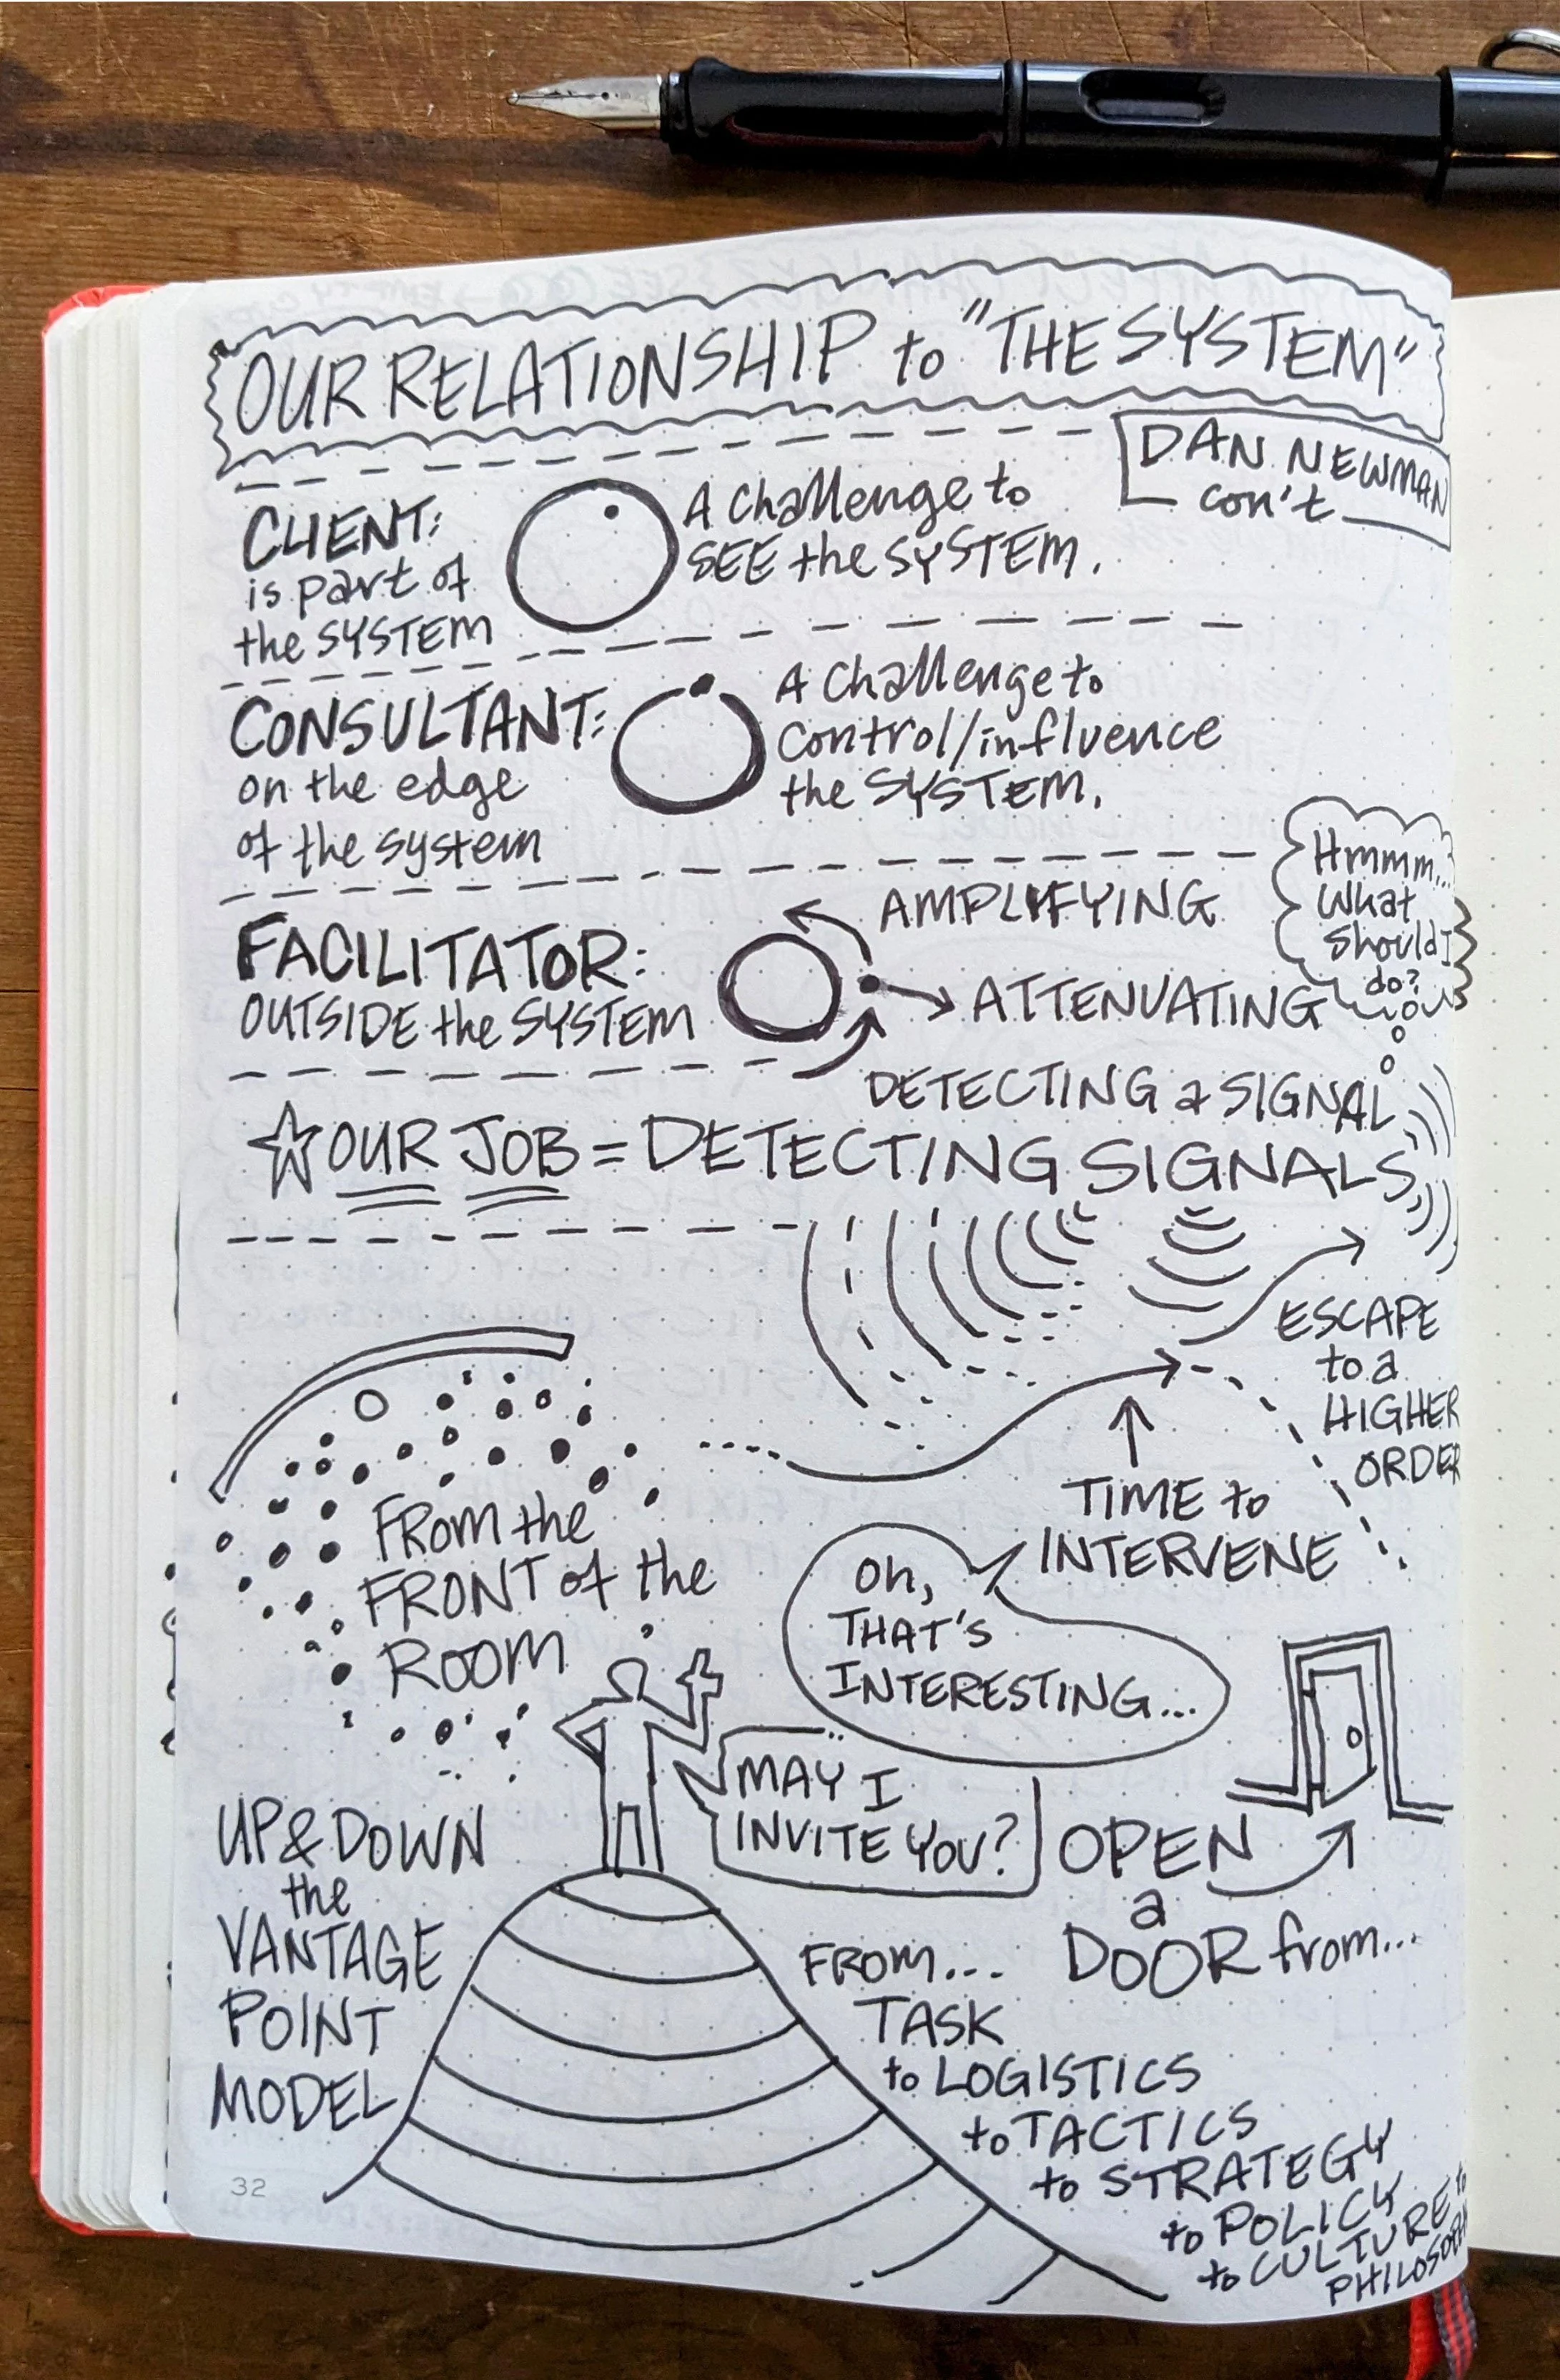 OUR RELATIONSHIP to "THE SYSTEM"
DAN NEWMAN
con't
CLIENT:
is part of
the SYSTEM
A challenge to
SEE the SYSTEM.
CONSULTANT:
on the edge
of the system
A challenge to
control/influence
the SYSTEM.
FACILITATOR:
OUTSIDE the SYSTEM
AMPLIFYING
ATTENUATING
DETECTING a SIGNAL
Hmmm...
What
Should I
do?
OUR JOB = DETECTING SIGNALS
ESCAPE
to a
HIGHER
ORDER
TIME to
INTERVENE
FROM the
FRONT of the
ROOM
Oh,
THAT'S
INTERESTING...
MAY I
INVITE YOU?
OPEN
a
DOOR from...
UP & DOWN
the
VANTAGE
POINT
MODEL
FROM...
TASK
to LOGISTICS
to TACTICS
to STRATEGY
to POLICY
to CULTURE to
32